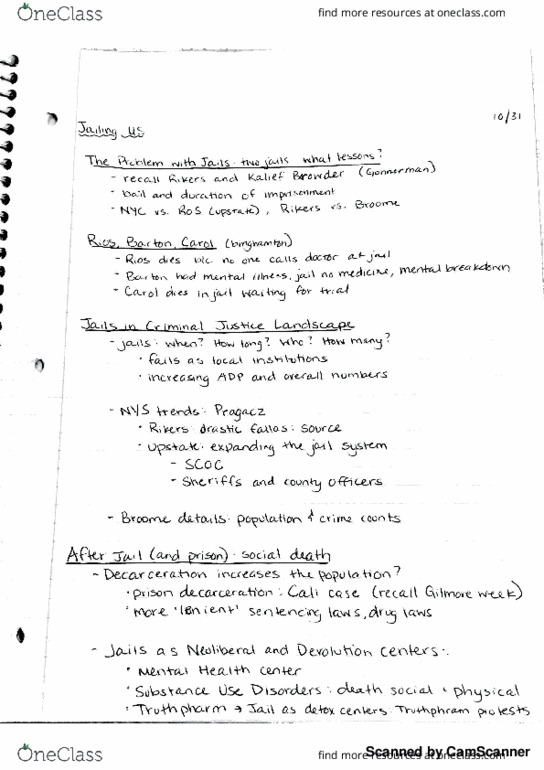 OneClass
find more resources at oneclass.com
10/31
Jailing US
The Problem with Jails: two jails what lessons?
- recall Rikers and Kalief Browder (Gonnerman)
- bail and duration of imprisonment
- NYC vs. ROS (upstate), Rikers vs. Broome
Rios, Barton, Carol (binghamton)
- Rios dies b/c no one calls doctor at jail
- Barton had mental illness, jail no medicine, mental breakdown
- Carol dies in jail waiting for trial
Jails in Criminal Justice Landscape
- jails: when? How long? Who? How many?
• fails as local institutions
• increasing ADP and overall numbers
- NYS trends: Pragacz
• Rikers drastic fallos: source
• upstate: expanding the jail system
- SCOC
- Sheriffs and county officers
- Broome details: population & crime counts
After Jail (and prison): social death
- Decarceration increases the population?
• prison decarceration: Cali case (recall Gilmore week)
• more 'lenient' sentencing laws, drug laws
- Jails as Neoliberal and Devolution centers:
• Mental Health center
• Substance Use Disorders: death social + physical
• Truthpharm → Jail as detox centers: Truthphram protests
OneClass
find more resources at oneclass.com
Scanned by CamScanner